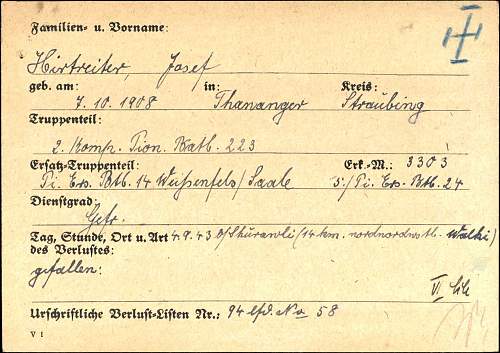 Familien- u. Vorname:
Hirtreiter, Josef
geb. am: in: Kreis:
7.10.1908 Thananger Straubing
Truppenteil:
2. Komp. Pion. Batl. 223
Ersatz-Truppenteil: Erk.-M.: 3303
Pi. Ers. Btl. 14 Weißenfels/Saale 5./Pi. Ers. Btl. 24
Dienstgrad:
Gefr.
Tag, Stunde, Ort u. Art 4.9.43 (14 km. nordnordwstl. Walki)
des Verlustes:
gefallen:
VI
Urschriftliche Verlust-Listen Nr.: 94 lfd. No 58
V 1